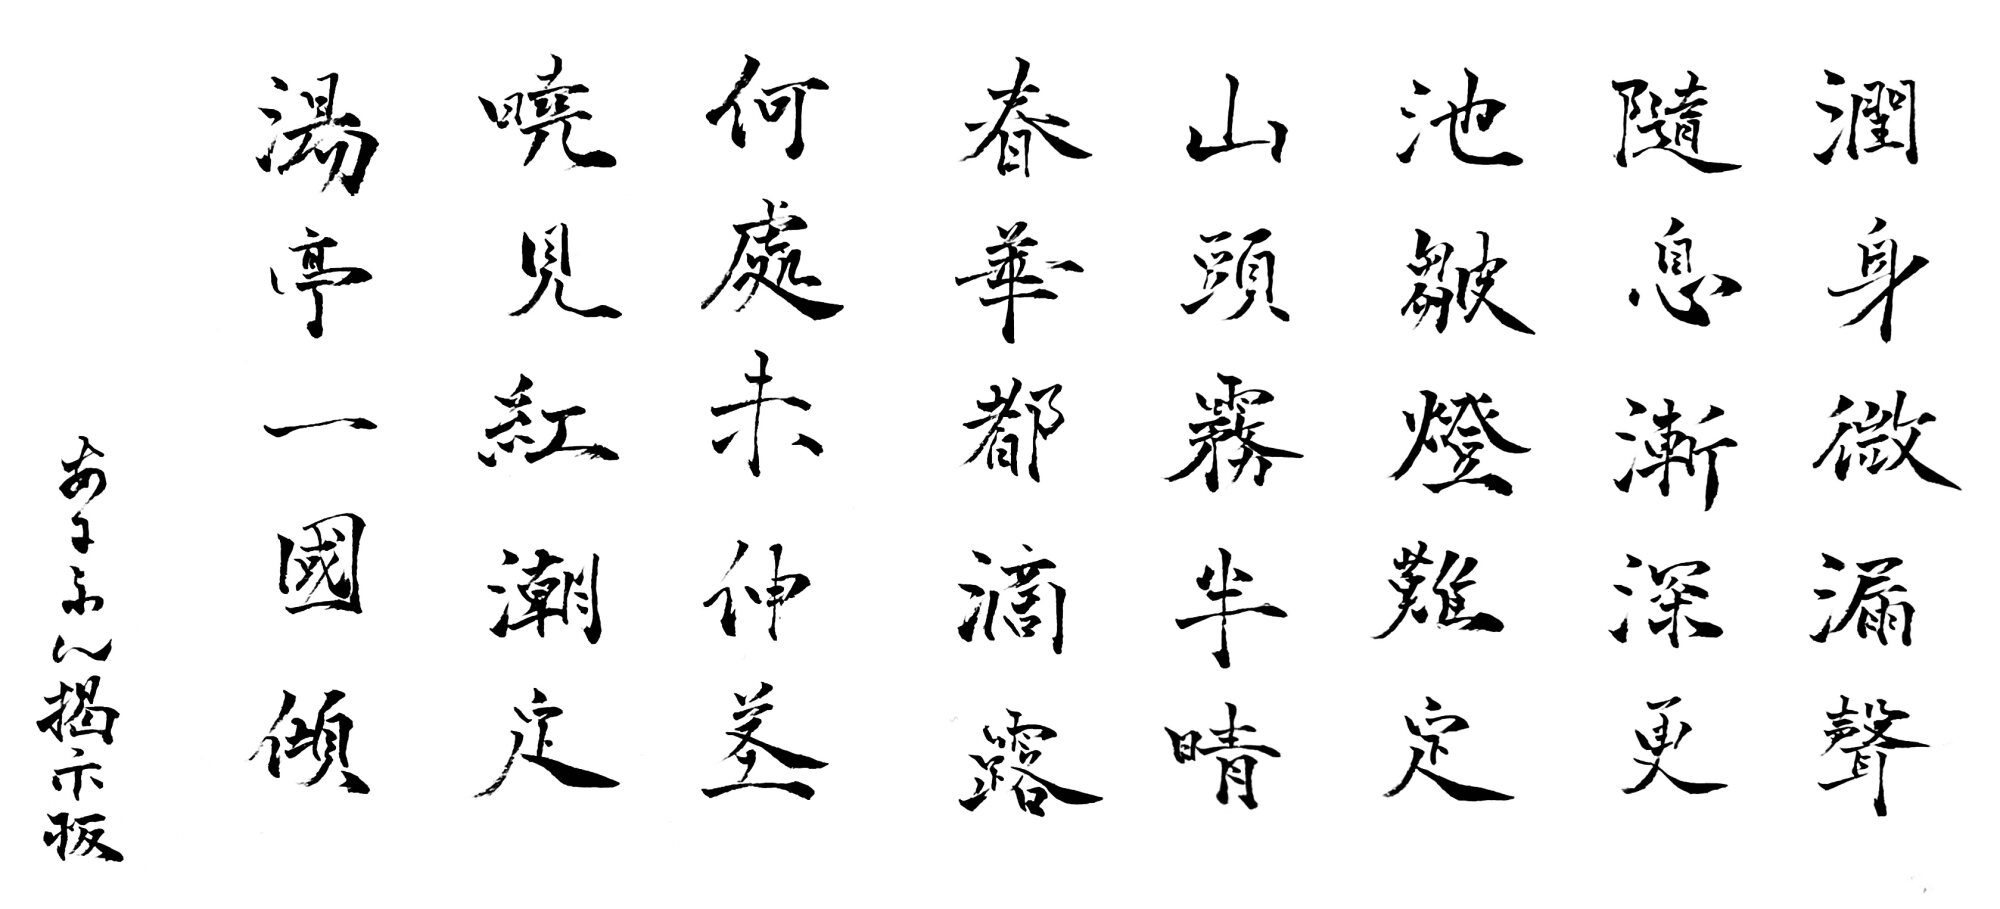 潤身微漏聲
隨息漸深更
池皺燈難定
山頭霧半晴
春華都滴露
何處未伸莖
曉見紅潮定
湯亭一國傾
掲示板